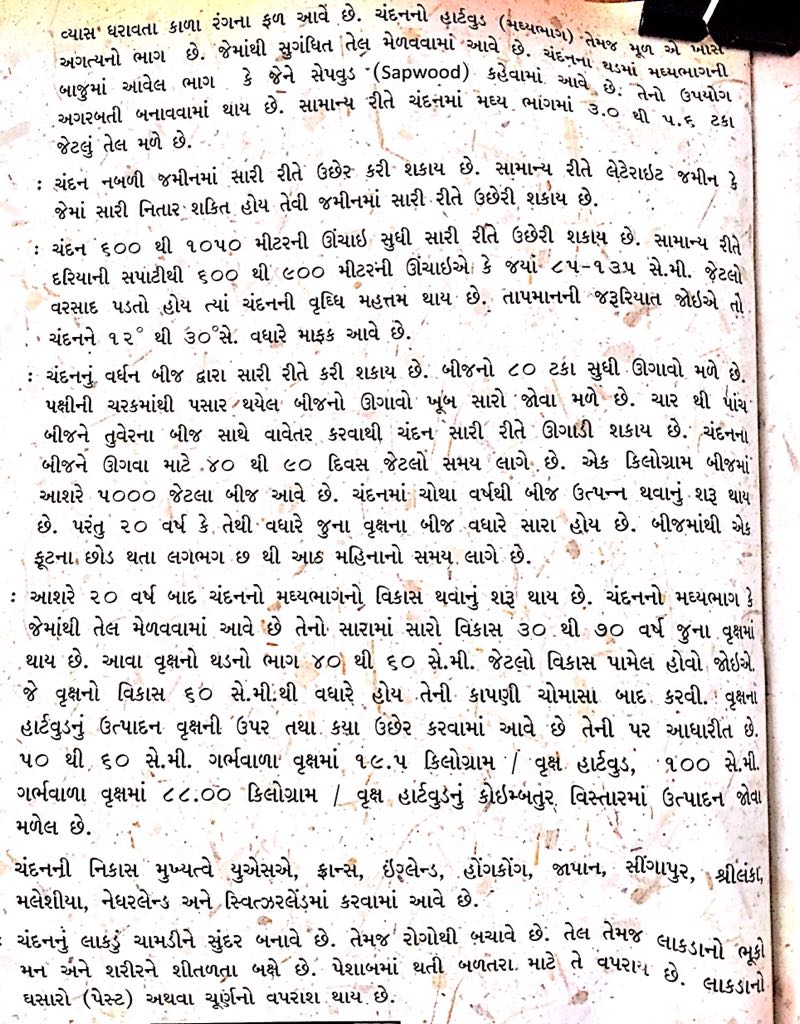 વ્યાસ ધરાવતા કાળા રંગના ફળ આવે છે. ચંદનનો હાર્ટવુડ (મધ્યભાગ) તેમજ મૂળ એ ખાસ
અગત્યનો ભાગ છે. જેમાંથી સુગંધિત તેલ મેળવવામાં આવે છે. ચંદનના થડમાં મધ્યભાગની
બાજુમાં આવેલ ભાગ કે જેને સેપવુડ (Sapwood) કહેવામાં આવે છે. તેનો ઉપયોગ
અગરબતી બનાવવામાં થાય છે. સામાન્ય રીતે ચંદનમાં મધ્ય ભાંગમાં ૩.૦ થી ૫.૬ ટકા
જેટલું તેલ મળે છે.
: ચંદન નબળી જમીનમાં સારી રીતે ઉછેર કરી શકાય છે. સામાન્ય રીતે લેટેરાઇટ જમીન કે
જેમાં સારી નિતાર શકિત હોય તેવી જમીનમાં સારી રીતે ઉછેરી શકાય છે.
: ચંદન ૬૦૦ થી ૧૦૫૦ મીટરની ઊંચાઇ સુધી સારી રીતે ઉછેરી શકાય છે. સામાન્ય રીતે
દરિયાની સપાટીથી ૬૦૦ થી ૯૦૦ મીટરની ઊંચાઇએ કે જયાં ૮૫-૧૩૫ સે.મી. જેટલો
વરસાદ પડતો હોય ત્યાં ચંદનની વૃધ્ધિ મહત્તમ થાય છે. તાપમાનની જરૂરિયાત જોઇએ તો
ચંદનને ૧૨° થી ૩૦°સે. વધારે માફક આવે છે.
: ચંદનનું વર્ધન બીજ દ્વારા સારી રીતે કરી શકાય છે. બીજનો ૮૦ ટકા સુધી ઊગાવો મળે છે.
પક્ષીની ચરકમાંથી પસાર થયેલ બીજનો ઊગાવો ખૂબ સારો જોવા મળે છે. ચાર થી પાંચ
બીજને તુવેરના બીજ સાથે વાવેતર કરવાથી ચંદન સારી રીતે ઊગાડી શકાય છે. ચંદનના
બીજને ઊગવા માટે ૪૦ થી ૯૦ દિવસ જેટલો સમય લાગે છે. એક કિલોગ્રામ બીજમાં
આશરે ૫૦૦૦ જેટલા બીજ આવે છે. ચંદનમાં ચોથા વર્ષથી બીજ ઉત્પન્ન થવાનું શરૂ થાય
છે. પરંતુ ૨૦ વર્ષ કે તેથી વધારે જુના વૃક્ષના બીજ વધારે સારા હોય છે. બીજમાંથી એક
ફૂટના છોડ થતા લગભગ છ થી આઠ મહિનાનો સમય લાગે છે.
: આશરે ૨૦ વર્ષ બાદ ચંદનનો મધ્યભાગનો વિકાસ થવાનું શરૂ થાય છે. ચંદનનો મધ્યભાગ કે
જેમાંથી તેલ મેળવવામાં આવે છે તેનો સારામાં સારો વિકાસ ૩૦ થી ૭૦ વર્ષ જુના વૃક્ષમાં
થાય છે. આવા વૃક્ષનો થડનો ભાગ ૪૦ થી ૬૦ સે.મી. જેટલો વિકાસ પામેલ હોવો જોઇએ.
જે વૃક્ષનો વિકાસ ૬૦ સે.મી.થી વધારે હોય તેની કાપણી ચોમાસા બાદ કરવી. વૃક્ષના
હાર્ટવુડનું ઉત્પાદન વૃક્ષની ઉપર તથા કયા ઉછેર કરવામાં આવે છે તેની પર આધારીત છે.
૫૦ થી ૬૦ સે.મી. ગર્ભવાળા વૃક્ષમાં ૧૯.૫ કિલોગ્રામ / વૃક્ષ હાર્ટવુડ, ૧૦૦ સે.મી.
ગર્ભવાળા વૃક્ષમાં ૮૮.૦૦ કિલોગ્રામ / વૃક્ષ હાર્ટવુડનું કોઇમ્બતુર વિસ્તારમાં ઉત્પાદન જોવા
મળેલ છે.
ચંદનની નિકાસ મુખ્યત્વે યુએસએ, ફ્રાન્સ, ઇંગ્લેન્ડ, હોંગકોંગ, જાપાન, સીંગાપુર, શ્રીલંકા,
મલેશીયા, નેધરલેન્ડ અને સ્વિત્ઝરલેંડમાં કરવામાં આવે છે.
: ચંદનનું લાકડું ચામડીને સુંદર બનાવે છે. તેમજ રોગોથી બચાવે છે. તેલ તેમજ લાકડાનો ભૂકો
મન અને શરીરને શીતળતા બક્ષે છે. પેશાબમાં થતી બળતરા માટે તે વપરાય છે. લાકડાનો
ઘસારો (પેસ્ટ) અથવા ચૂર્ણનો વપરાશ થાય છે.